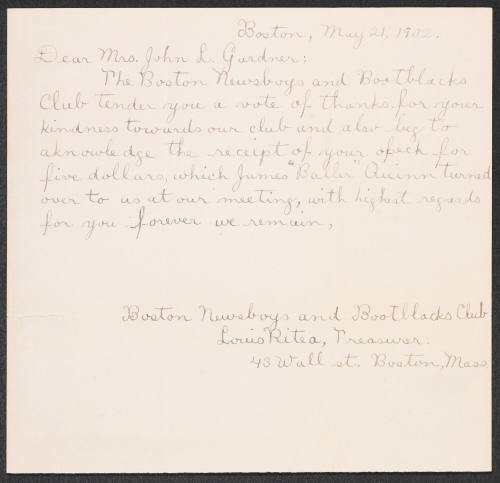 Boston, May 21, 1902.
Dear Mrs. John L. Gardner:
The Boston Newsboys and Bootblacks
Club tender you a vote of thanks for your
kindness towards our club and also beg to
aknowledge the receipt of your check for
five dollars, which James "Baller" Quinn turned
over to us at our meeting, with highest regards
for you forever we remain,
Boston Newsboys and Bootblacks Club
Louis Ritea, Treasurer.
43 Wall st. Boston, Mass.